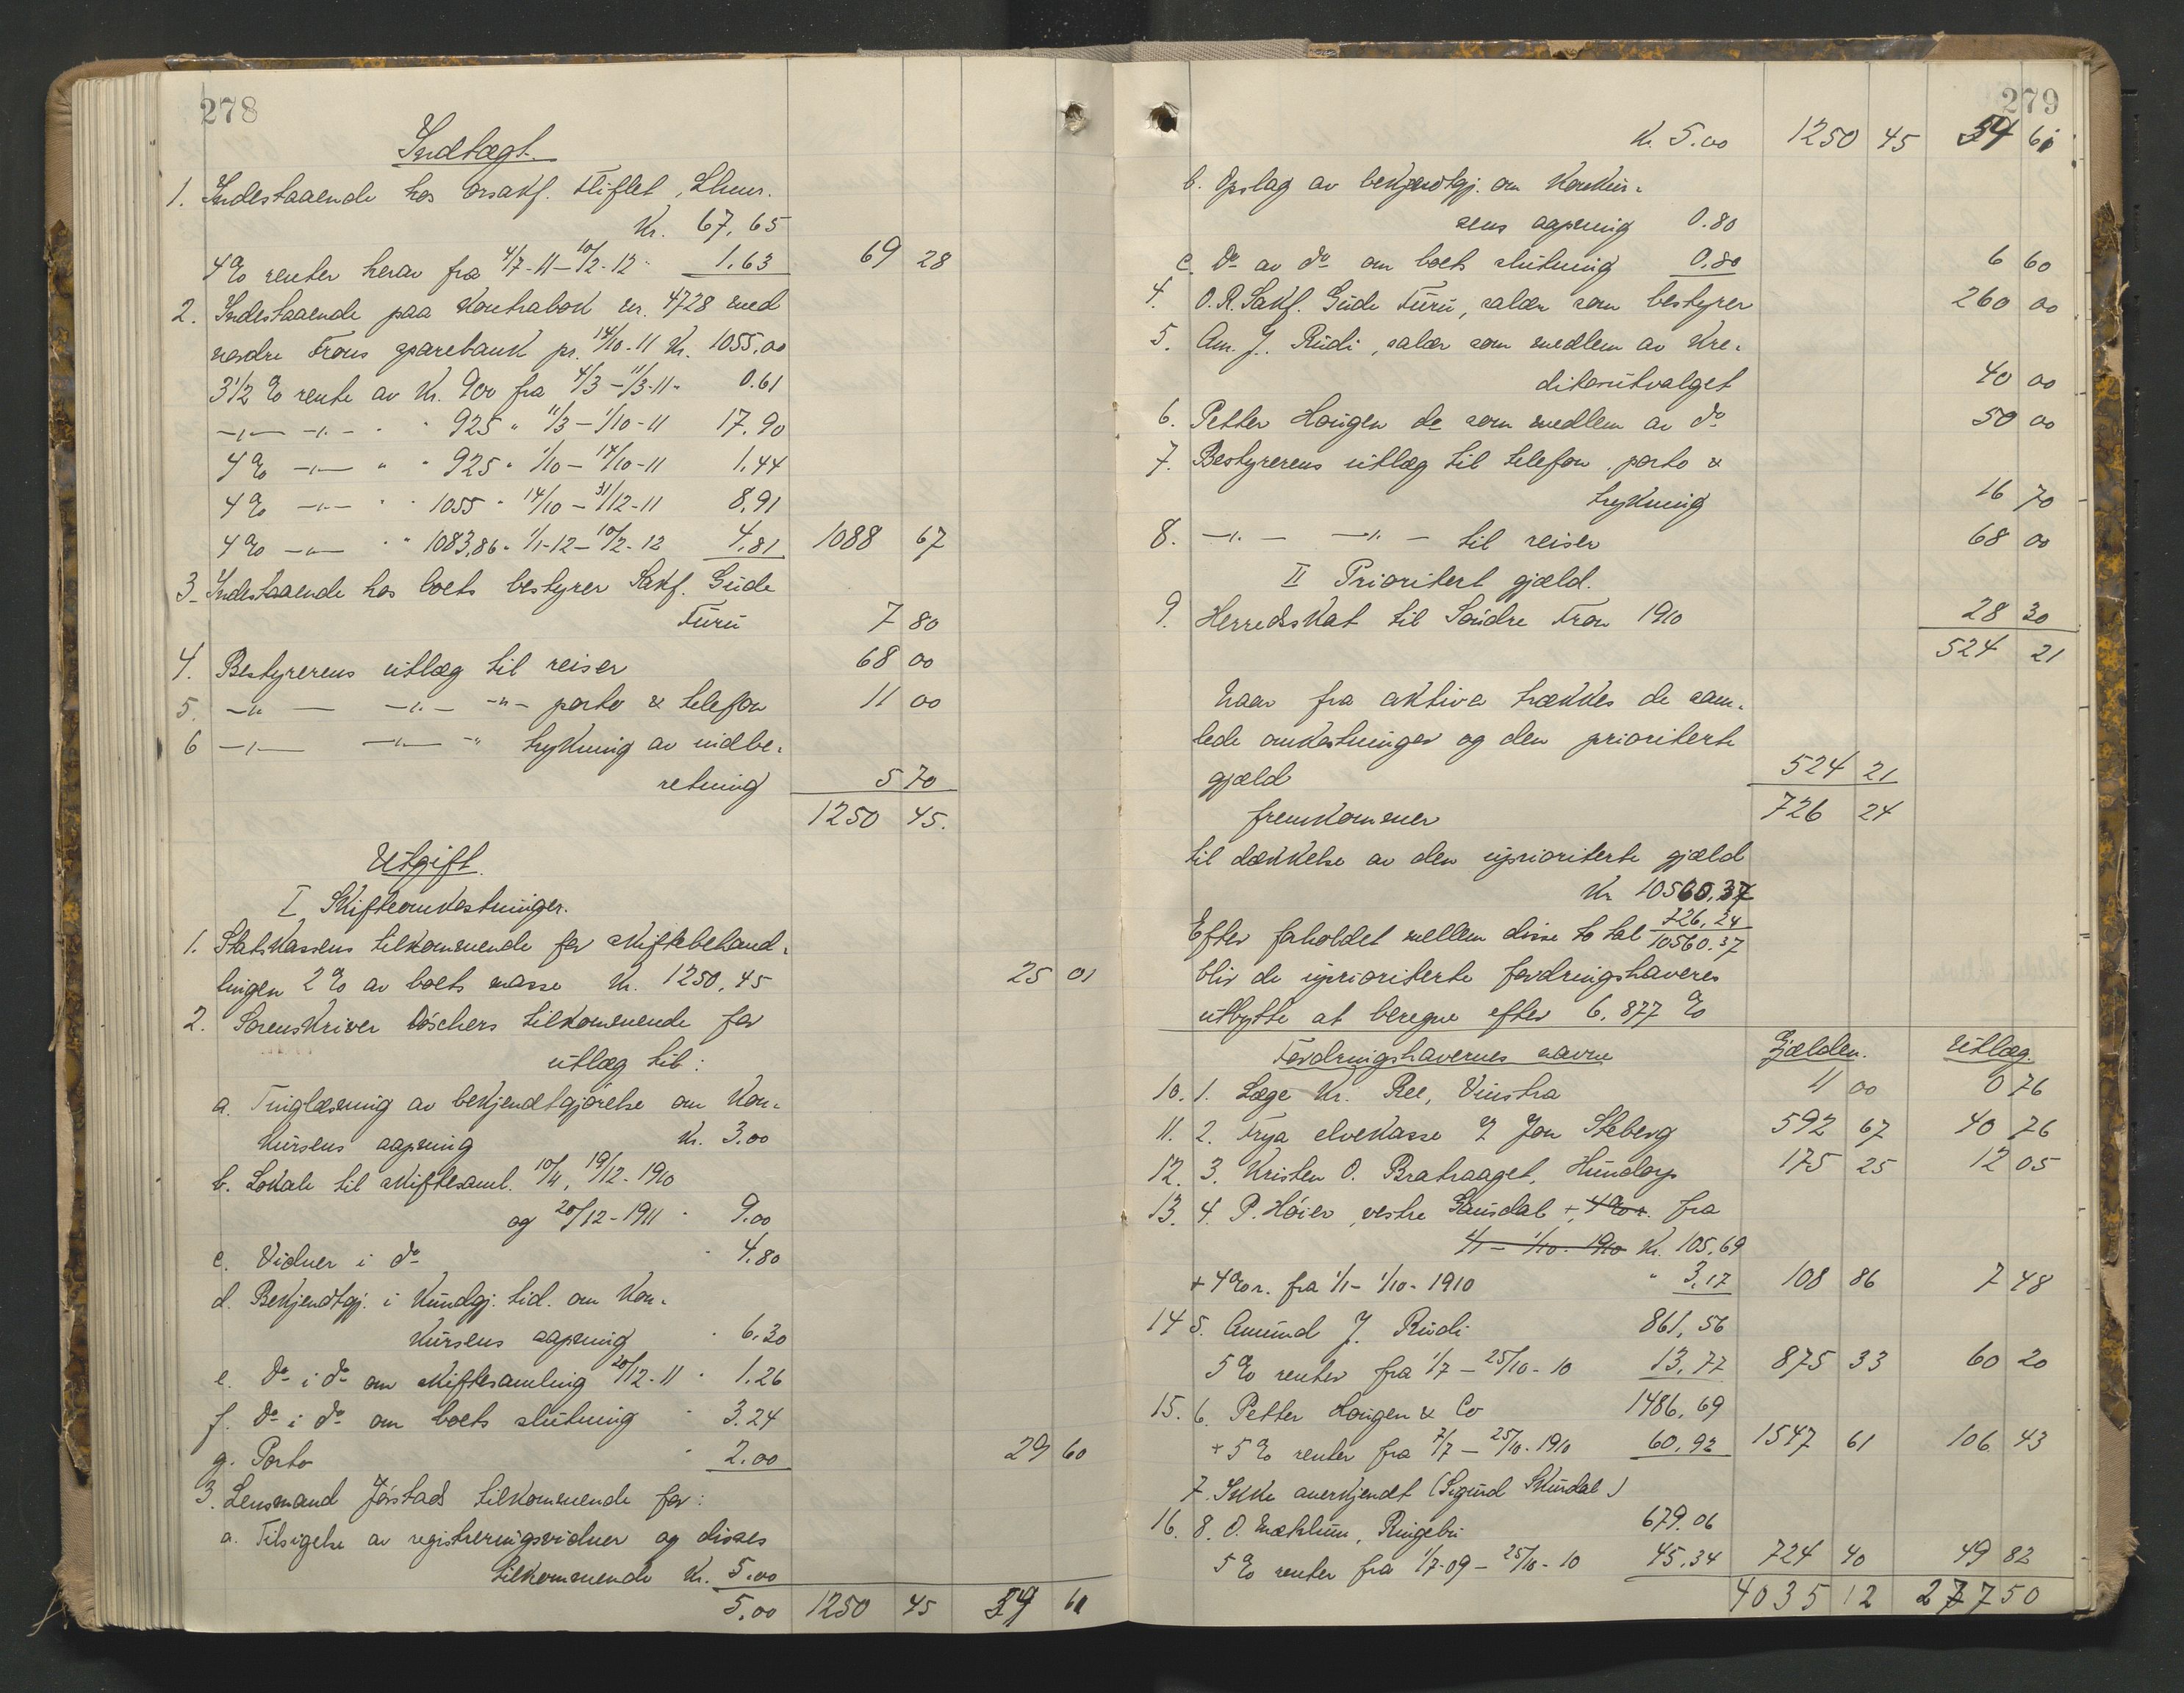 278
Indtægt.
1. Indestaaende hos orsakf. Fliflet, Lhmr.
Kr. 67,65
4 % renter herav fra 4/7-11-10/2-12 " 1.63 69 28
2. Indestaaende paa Kontrabok nr. 4728 med
nordre Frons sparebank pr. 14/10-11 Kr. 1055,00
3 1/2 % rente av Kr. 900 fra 4/3-11/3-11 " 0.61
-"- -"- " " 925 " 11/3-1/10-11 17.90
4 % -"- " " 925 " 1/10-14/10-11 1,44
4 % -"- " " 1055 " 14/10-31/12-11 8,91
4 % -"- " " 1083,86 " 1/1-12-10/2-12 4,81 1088 67
3. Indestaaende hos boets bestyrer Sakf. Gude
Furu 7 80
4. Bestyrerens utlæg til reiser 68 00
5. -"- -"- -"- porto & telefon 11 00
6 -"- -"- " trykning av indbe-
retning 5 70
1250 45.
Utgift.
I Skifteomkostninger.
1. Statskassens tilkommende for skiftebehand-
lingen 2 % av boets masse Kr. 1250,45 25 01
2. Sorenskriver Döschers tilkommende for
utlæg til:
a. Tinglæsning av bekjendtgjørelse om Kon-
kursens aapning Kr. 3.00
b. Lokale til skiftesaml. 10/11, 19/12-1910
og 20/12-1911 " 9.00
c. Vidner i do " 4.80
d. Bekjendtgj. i Kundgj. tid. om Kon-
kursens aapning " 6.30
e. do i do om skiftesamling 20/12-11 " 1.26
f. do i do om boets slutning " 3.24
g. Porto " 2.00 29 60
3. Lensmand Jørstads tilkommende for:
a. Tilsigelse av registreringsvidner og disses
tilkommende Kr. 5.00
5,00 1250 45 54 61
279
Kr. 5.00 1250 45 54 61
b. Opslag av bekjendtgj. om Konkur-
sens aapning 0.80
c. Do av do om boets slutning 0,80 6 60
4. O.R. Sakf. Gude Furu, salær som bestyrer 260 00
5. Am. J. Rudi, salær som medlem av Kre-
ditorutvalget 40 00
6. Petter Haugen do som medlem av do 50 00
7. Bestyrerens utlæg til telefon, porto &
trykning 16 70
8. -"- -"- til reiser 68 00
II Prioritert gjæld.
9. Herredskat til Søndre Fron 1910 28 30
524 21
Naar fra aktiva trækkes de sam-
lede omkostninger og den prioriterte
gjæld 524 21
fremkommer 726 24
til dækkelse av den uprioriterte gjæld
Kr 10560,37
Efter forholdet mellem disse to tal 726,24/10560.37
blir de uprioriterte fordringshaveres
utbytte at beregne efter 6,877 %
Fordringshavernes navne Gjælden. Utlæg.
10. 1. Læge Kr. Ree, Vinstra 11 00 0 76
11. 2. Frya elvekasse v/ Jon Steberg 592 67 40 76
12. 3. Kristen O. Brahaaget, Hundorp 175 25 12 05
13. 4. P. Høier, vestre Gausdal + 4 % r. fra
1/1-1/10-1910 Kr. 105,69
+ 4 % r. fra 1/1-1/10-1910 " 3,17 108 86 7 48
14 5. Amund J. Rudi 861,56
5 % renter fra 1/7-25/10-10 13,77 875 33 60 20
15. 6. Petter Haugen & Co 1486,69
+ 5 % renter fra 7/7-25/10-1910 60,92 1547 61 106 43
7. Ikke anerkjendt (Sigurd Skurdal)
16. 8. O. Mæhlum, Ringebu 679.06
5 % renter fra 1/7-09-25/10-10 45.34 724 40 49 82
4035 12 277 50